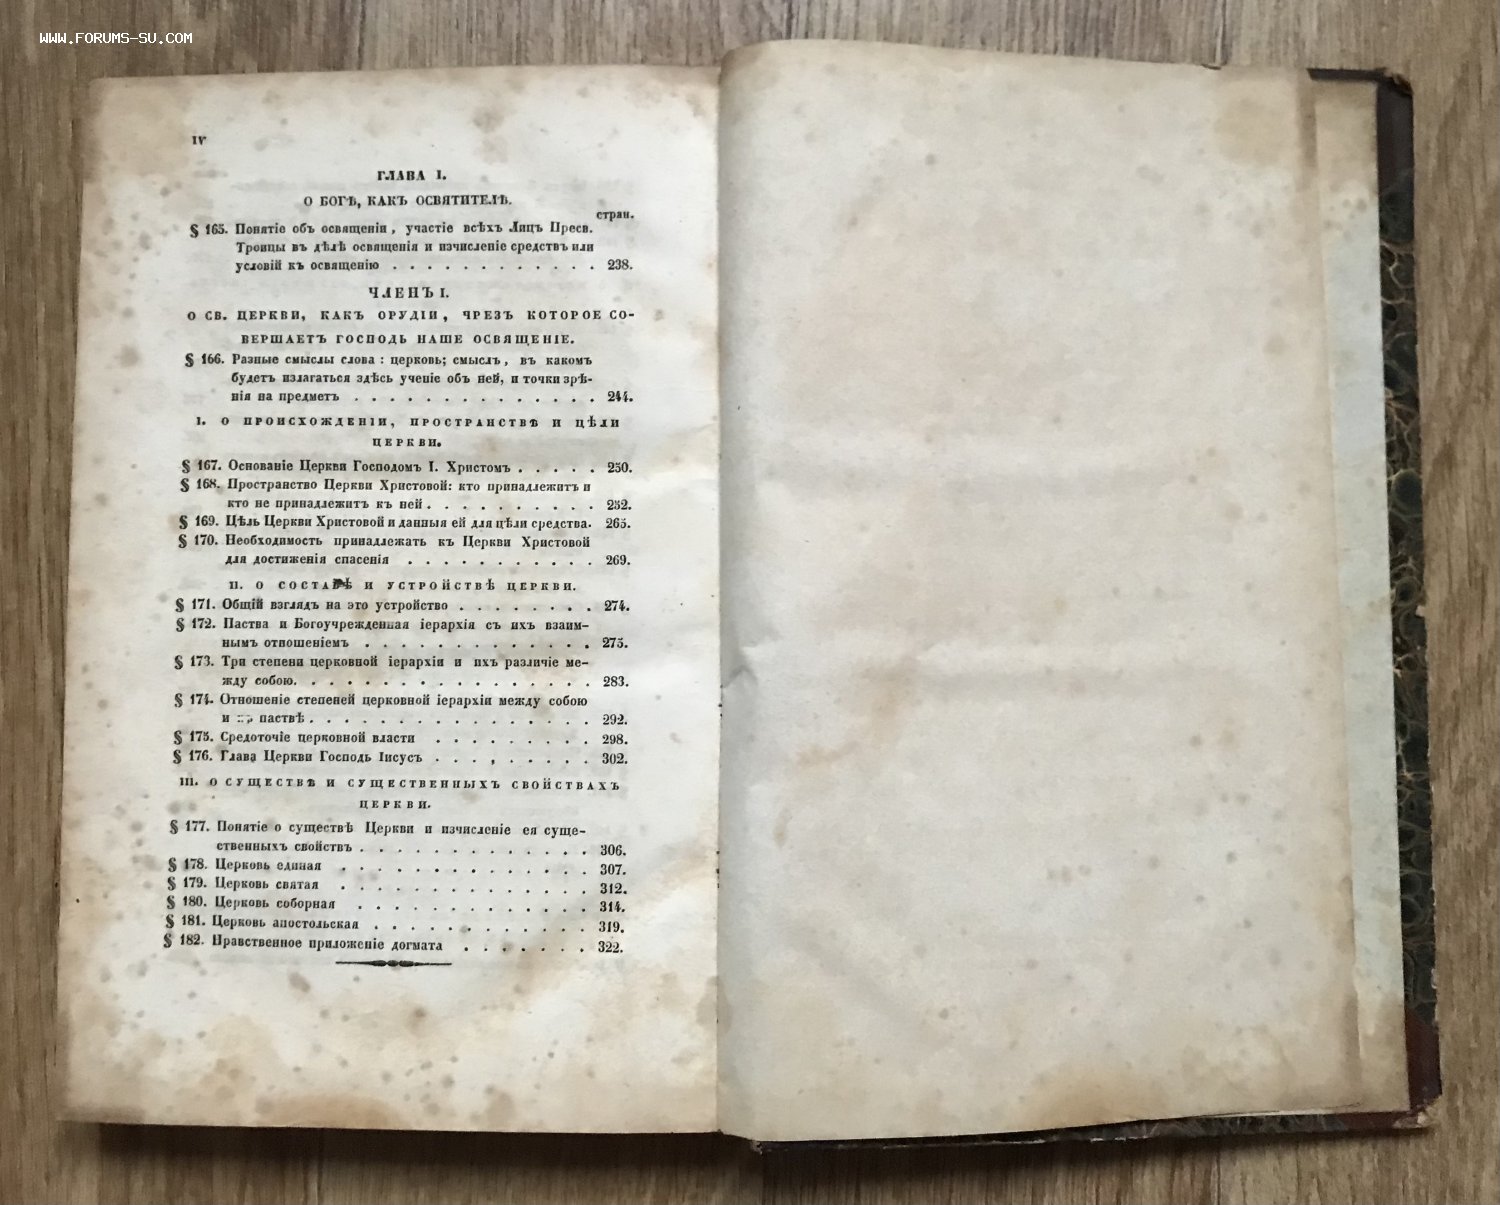 WWW.FORUMS-SU.COM
IV
ГЛАВА I.
О БОГѢ, КАКЪ ОСВЯТИТЕЛѢ.
стран.
§ 165. Понятіе объ освященіи, участіе всѣхъ Лицъ Пресв.
Троицы въ дѣлѣ освященія и изчисленіе средствъ или
условій къ освященію . . . . . . . . . . . . 238.
ЧЛЕНЪ I.
О СВ. ЦЕРКВИ, КАКЪ ОРУДІИ, ЧРЕЗЪ КОТОРОЕ СО-
ВЕРШАЕТЪ ГОСПОДЬ НАШЕ ОСВЯЩЕНІЕ.
§ 166. Разные смыслы слова: церковь; смыслъ, въ какомъ
будетъ излагаться здѣсь ученіе объ ней, и точки зрѣ-
нія на предметъ . . . . . . . . . . . . . . 244.
I. О ПРОИСХОЖДЕНІИ, ПРОСТРАНСТВѢ И ЦѢЛИ
ЦЕРКВИ.
§ 167. Основаніе Церкви Господомъ I. Христомъ . . . . . 250.
§ 168. Пространство Церкви Христовой: кто принадлежитъ и
кто не принадлежитъ къ ней . . . . . . . . . . 252.
§ 169. Цѣль Церкви Христовой и данныя ей для цѣли средства. 265.
§ 170. Необходимость принадлежать къ Церкви Христовой
для достиженія спасенія . . . . . . . . . . . 269.
II. О СОСТАВѢ И УСТРОЙСТВѢ ЦЕРКВИ.
§ 171. Общій взглядъ на это устройство . . . . . . . . 274.
§ 172. Паства и Богоучрежденная іерархія съ ихъ взаим-
нымъ отношеніемъ . . . . . . . . . . . . . 275.
§ 173. Три степени церковной іерархіи и ихъ различіе ме-
жду собою. . . . . . . . . . . . . . . . . 283.
§ 174. Отношеніе степеней церковной іерархіи между собою
и паствѣ . . . . . . . . . . . . . . . . 292.
§ 175. Средоточіе церковной власти . . . . . . . . . 298.
§ 176. Глава Церкви Господь Іисусъ . . . . . . . . . 302.
III. О СУЩЕСТВѢ И СУЩЕСТВЕННЫХЪ СВОЙСТВАХЪ
ЦЕРКВИ.
§ 177. Понятіе о существѣ Церкви и изчисленіе ея суще-
ственныхъ свойствъ . . . . . . . . . . . . . 306.
§ 178. Церковь единая . . . . . . . . . . . . . . 307.
§ 179. Церковь святая . . . . . . . . . . . . . . 312.
§ 180. Церковь соборная . . . . . . . . . . . . . 314.
§ 181. Церковь апостольская . . . . . . . . . . . . 319.
§ 182. Нравственное приложеніе догмата . . . . . . . 322.